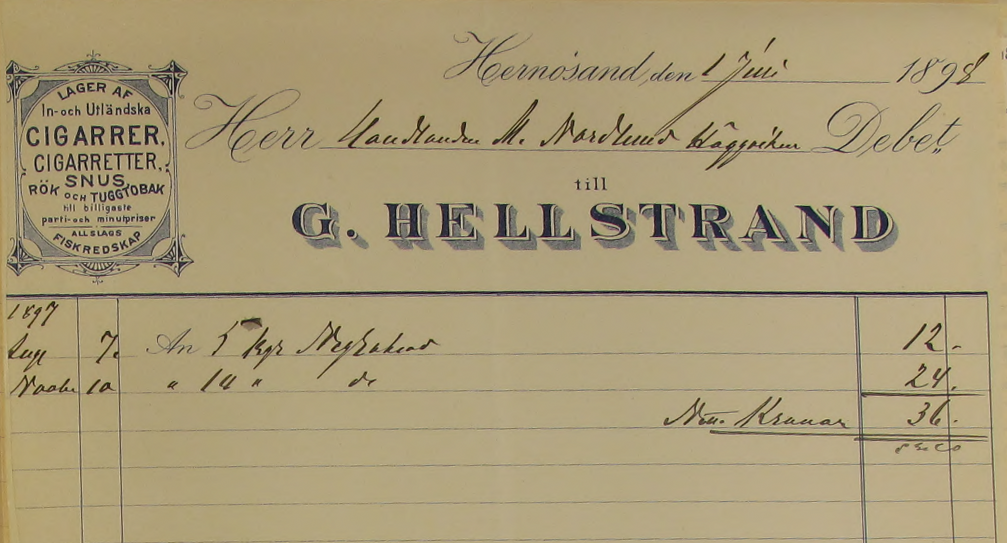 LAGER AF
In-och Utländska
CIGARRER,
CIGARRETTER,
SNUS
RÖK OCH TUGGTOBAK
till billigaste
parti-och minutpriser
ALLSLAGS
FISKREDSKAP
Hernösand, den 1 Juni 1898
Herr Handlanden M. Nordlund Häggviken Debet
till
G. HELLSTRAND
1897
Aug 7. An 5 Kgr 12.-
10 " 10 " do 24.
Kronor 36.-